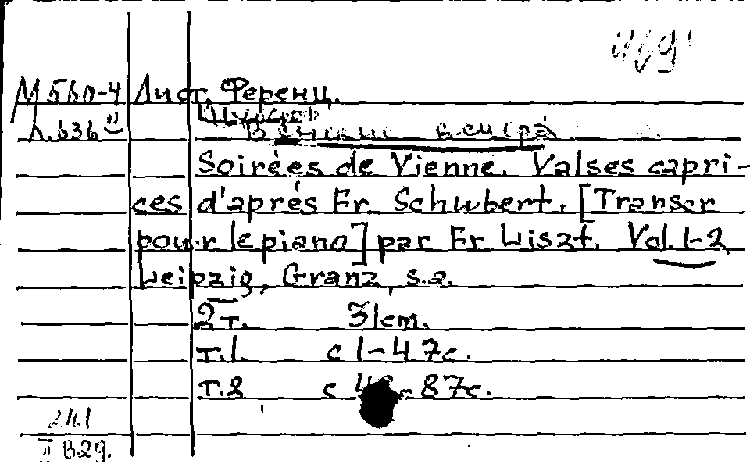 М560-4 Лист, Ференц.
Л.636
Soirées de Vienne. Valses capri-
ces d'aprés Fr. Schubert. [Transcr
pour le piano] par Fr Liszt. Vol. 1-2
Leipzig, Cranz, s.a.
2 т. 31cm.
т.1. с 1-47с.
т.2 с 48-87с.
241
II В29.